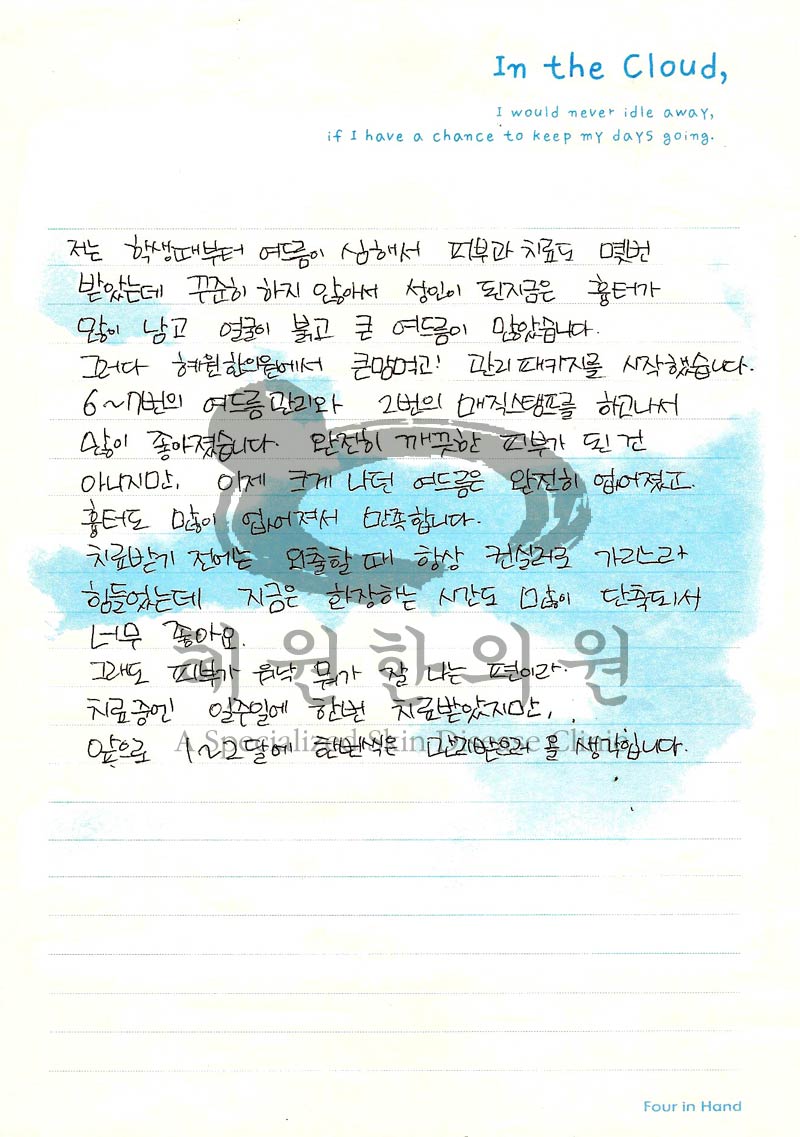 In the Cloud,
I would never idle away,
if I have a chance to keep my days going.
저는 학생때부터 여드름이 심해서 피부과 치료도 몇번
받았는데 꾸준히 하지 않아서 성인이 된지금은 흉터가
많이 남고 얼굴이 붉고 큰 여드름이 많았습니다.
그러다 혜원한의원에서 큰맘먹고! 관리패키지를 시작했습니다.
6~7번의 여드름관리와 2번의 매직스탬프를 하고나서
많이 좋아졌습니다. 완전히 깨끗한 피부가 된 건
아니지만, 이제 크게 나던 여드름은 완전히 없어졌고
흉터도 많이 없어져서 만족합니다.
치료받기 전에는 외출할 때 항상 컨실러로 가리느라
힘들었는데 지금은 화장하는 시간도 많이 단축되서
너무 좋아요.
그래도 피부가 워낙 뭐가 잘 나는 편이라
치료중엔 일주일에 한번 치료받았지만,
앞으로 1~2달에 한번씩은 관리받으러 올 생각입니다.
혜원한의원
A Specialized Skin Disease Clinic
Four in Hand